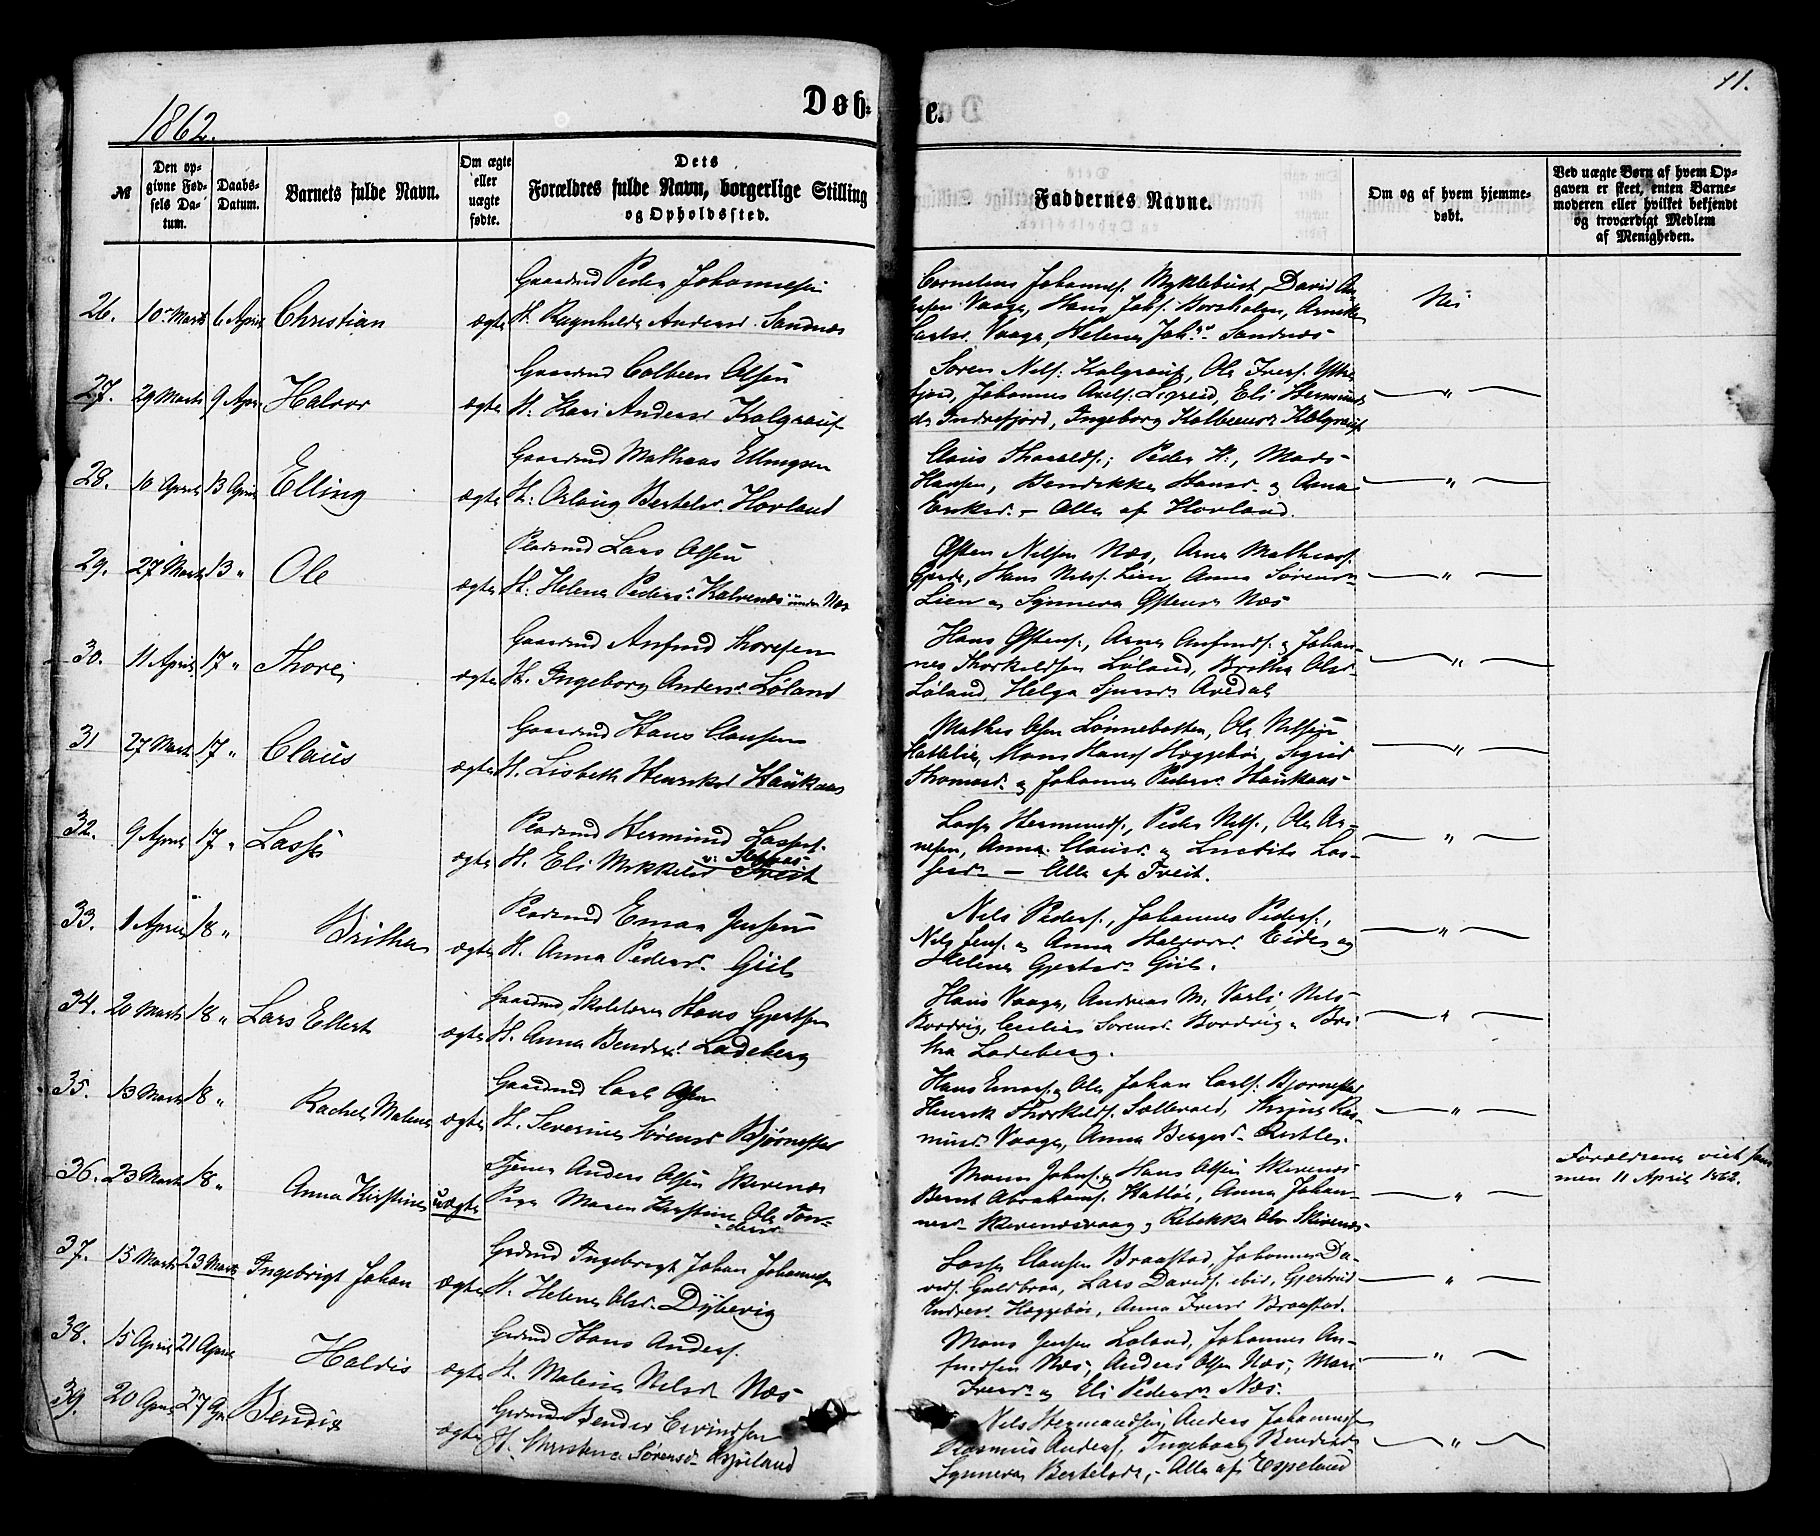 1862.
Døb-
te.
11.
№
Den op-
givne Fød-
sels Da-
tum.
Daabs-
Datum.
Barnets fulde Navn.
Om ægte
eller
uægte
fødte.
Dets
Forældres fulde Navn, borgerlige Stilling
og Opholdssted.
Faddernes Navne.
Om og af hvem hjemme-
døbt.
Ved uægte Børn af hvem Op-
gaven er skeet, enten Barne-
moderen eller hvilket bekjendt
og troværdigt Medlem
af Menigheden.
26. 10 Marts 6 April Christian ægte
Gaardmd Peder Johannesen
H. Ragnhilda Andersd. Sandnæs
Cornelius Johannes. Myklebust, David
Vaage, Hans Joh. Arnika
Vaage, Helene Joh. Sandnæs
Nei
27. 29 Marts 9 Apr. Halvor ægte
Gaardmd Colbeen Olsen
H. Kari Andersd Kolgrouf
Søren Nils. Kolgrouf, Ole Ivers. Yttre
fjord, Johannes Axels. Ligreid, Eli Hermunds
dr Indrefjord, Ingeborg Kolbeensd. Kolgrouf
— " —
28. 10 April 13 April Elling ægte
Gaardmd Mathias Ellingsen
H. Oslaug Bertelsd. Hovland
Claus Haralds., Peder H., Mads
Hansen, Bendikke Hansd. og Anna
Eriksd. – Alle af Hovland.
— " —
29. 27 Marts 13 " Ole ægte
Pladsmd Lars Olsen
H. Helene Pedersd. Kalvenæs under Næs
Østen Nilsen Næs, Arne Mathias.
Gjerde, Hans Nils. Lien, Anna Sørensd.
Lien og Synneva Østensd. Næs
— " —
30. 11 April 17 " Thore ægte
Gaardmd Anfind Thoresen
H. Ingeborg Andersd. Løland
Hans Østens., Arne Anfinds. og Johan-
nes Thorkildsen Løland, Britha Olsd.
Løland, Helga Sjursd. Aredal
— " —
31 27 Marts 17 " Claus ægte
Gaardmd Hans Clausen
H. Lisbeth Henriksd Haukaas
Mathis Olsen Lønnebotten, Ole Nilsen
Mons Hans. Hæggebø, Sigrid
Thomasd. og Johanne Pedersd. Haukaas
— " —
32. 9 April 17 " Lasse ægte
Pladsmd Hermund Lasses.
H. Eli Mikkelsd Tveit
Lasse Hermunds., Peder Nils., Ole Ar-
nesen, Anna Clausd. og Las-
sesd. – Alle af Tveit.
— " —
33. 1 April 18 " Britha ægte
Pladsmd Emar Jensen
H. Anna Pedersd. Giil
Nils Peders., Johannes Peders.,
Nils Jens. og Anna Halvorsd. Eide og
Helene Gjertsd. Giil.
— " —
34. 20 Marts 18 " Lars Ellert ægte
Gaardmd, Skolelærer Hans Gjertsen
H. Anna Bendixd. Ladeberg
Hans Vaage, Andreas M. Varli, Nils
Bordvig, Cecilie Sørensd. Bordvig og Bri-
tha Ladeberg.
— " —
35. 13 Marts 18 " Rachel Malene ægte
Gaardmd Carl Olsen
H. Severine Sørensd Bjørnestad
Hans Emars. og Ole Johan Carls. Bjørnestad
Henrik Thorkilds. Sellevold, Ras-
musd. Vaage, Anna Bergesd.
— " —
36. 23 Marts 18 " Anna Kirstine uægte
Tjener Anders Olsen Skivenæs
Pige Maren Kirstine Ole Tøn-
desd.
Mons Johs. og Hans Olsen Skivenæs
Bernt Abrahams. Hatløi, Anna Johan-
nesd. Skivenæsvaag og Rebekka Olsd. Skivenæs
— " —
Forældrene viet sam
men 11 April 1862.
37. 15 Marts 23 Marts Ingebrigt Johan ægte
Grdmd Ingebrigt Johan Johannesen
H. Helene Olsd. Dybevig
Lasse Clausen Braastad, Johannes Da-
vids. Guldbraa, Lars Davids. ibid, Gjertrud
Endresd. Hæggebø, Anna Iversd Braastad.
— " —
38. 15 April 21 April Haldis ægte
Grdmd Hans Anders.
H. Malene Nilsd Næs
Mons Jensen Løland, Johannes An-
findsen Næs, Anders Olsen Næs, Mari
Iversd. og Eli Pedersd. Næs.
— " —
39. 20 April 27 Apr. Bendix ægte
Grdmd Bendix Eivindsen
H. Kirstine Sørensd. Espeland
Nils Hermundsen, Anders Johannesen
Rasmus Anders., Ingeborg Bendixd.
Synneva Bertelsd., – Alle af Espeland
— " —